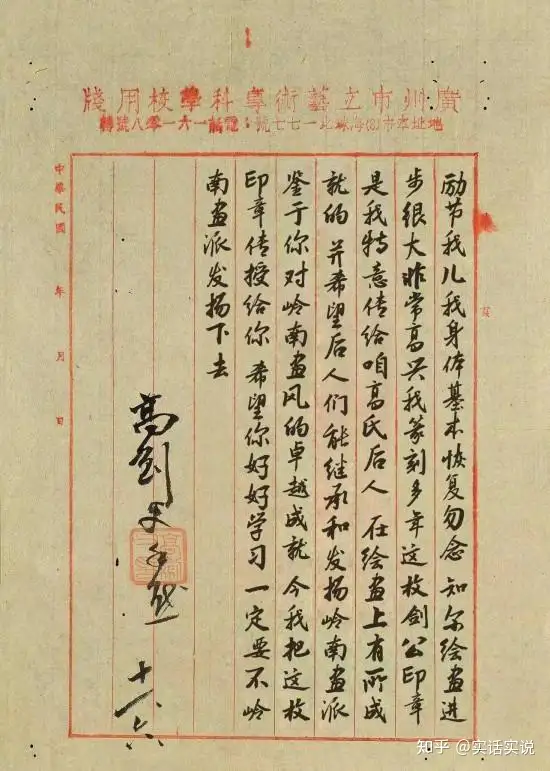 廣州市立藝術專科學校用牋
地址本市(8)海珠北一七七號：電話一六一零八號轉
励节我儿我身体基本恢复勿念 知尔绘画进
步很大非常高兴我篆刻多年这枚剑公印章
是我特意传给咱高氏后人 在绘画上有所成
就的 并希望后人们能继承和发扬岭南画派
鉴于你对岭南画风的卓越成就今我把这枚
印章传授给你 希望你好好学习 一定要不岭
南画派发扬下去
高剑父
中華民國 年 月 日
知乎 @实话实说